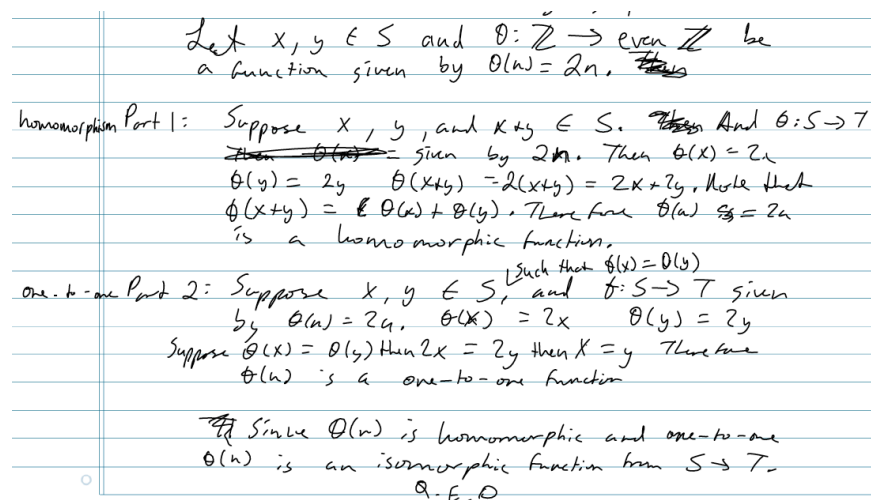 Let x, y ∈ S and θ: ℤ → even ℤ be
a function given by θ(n) = 2n.
homomorphism Part 1: Suppose x, y, and x+y ∈ S. And θ: S → T
given by 2n. Then θ(x) = 2x
θ(y) = 2y θ(x+y) = 2(x+y) = 2x + 2y. Note that
θ(x+y) = θ(x) + θ(y). Therefore θ(n) = 2n
is a homomorphic function.
such that θ(x) = θ(y)
one-to-one Part 2: Suppose x, y ∈ S, and θ: S → T given
by θ(n) = 2n. θ(x) = 2x θ(y) = 2y
Suppose θ(x) = θ(y) then 2x = 2y then x = y Therefore
θ(n) is a one-to-one function
Since θ(n) is homomorphic and one-to-one
θ(n) is an isomorphic function from S → T.
Q.E.D